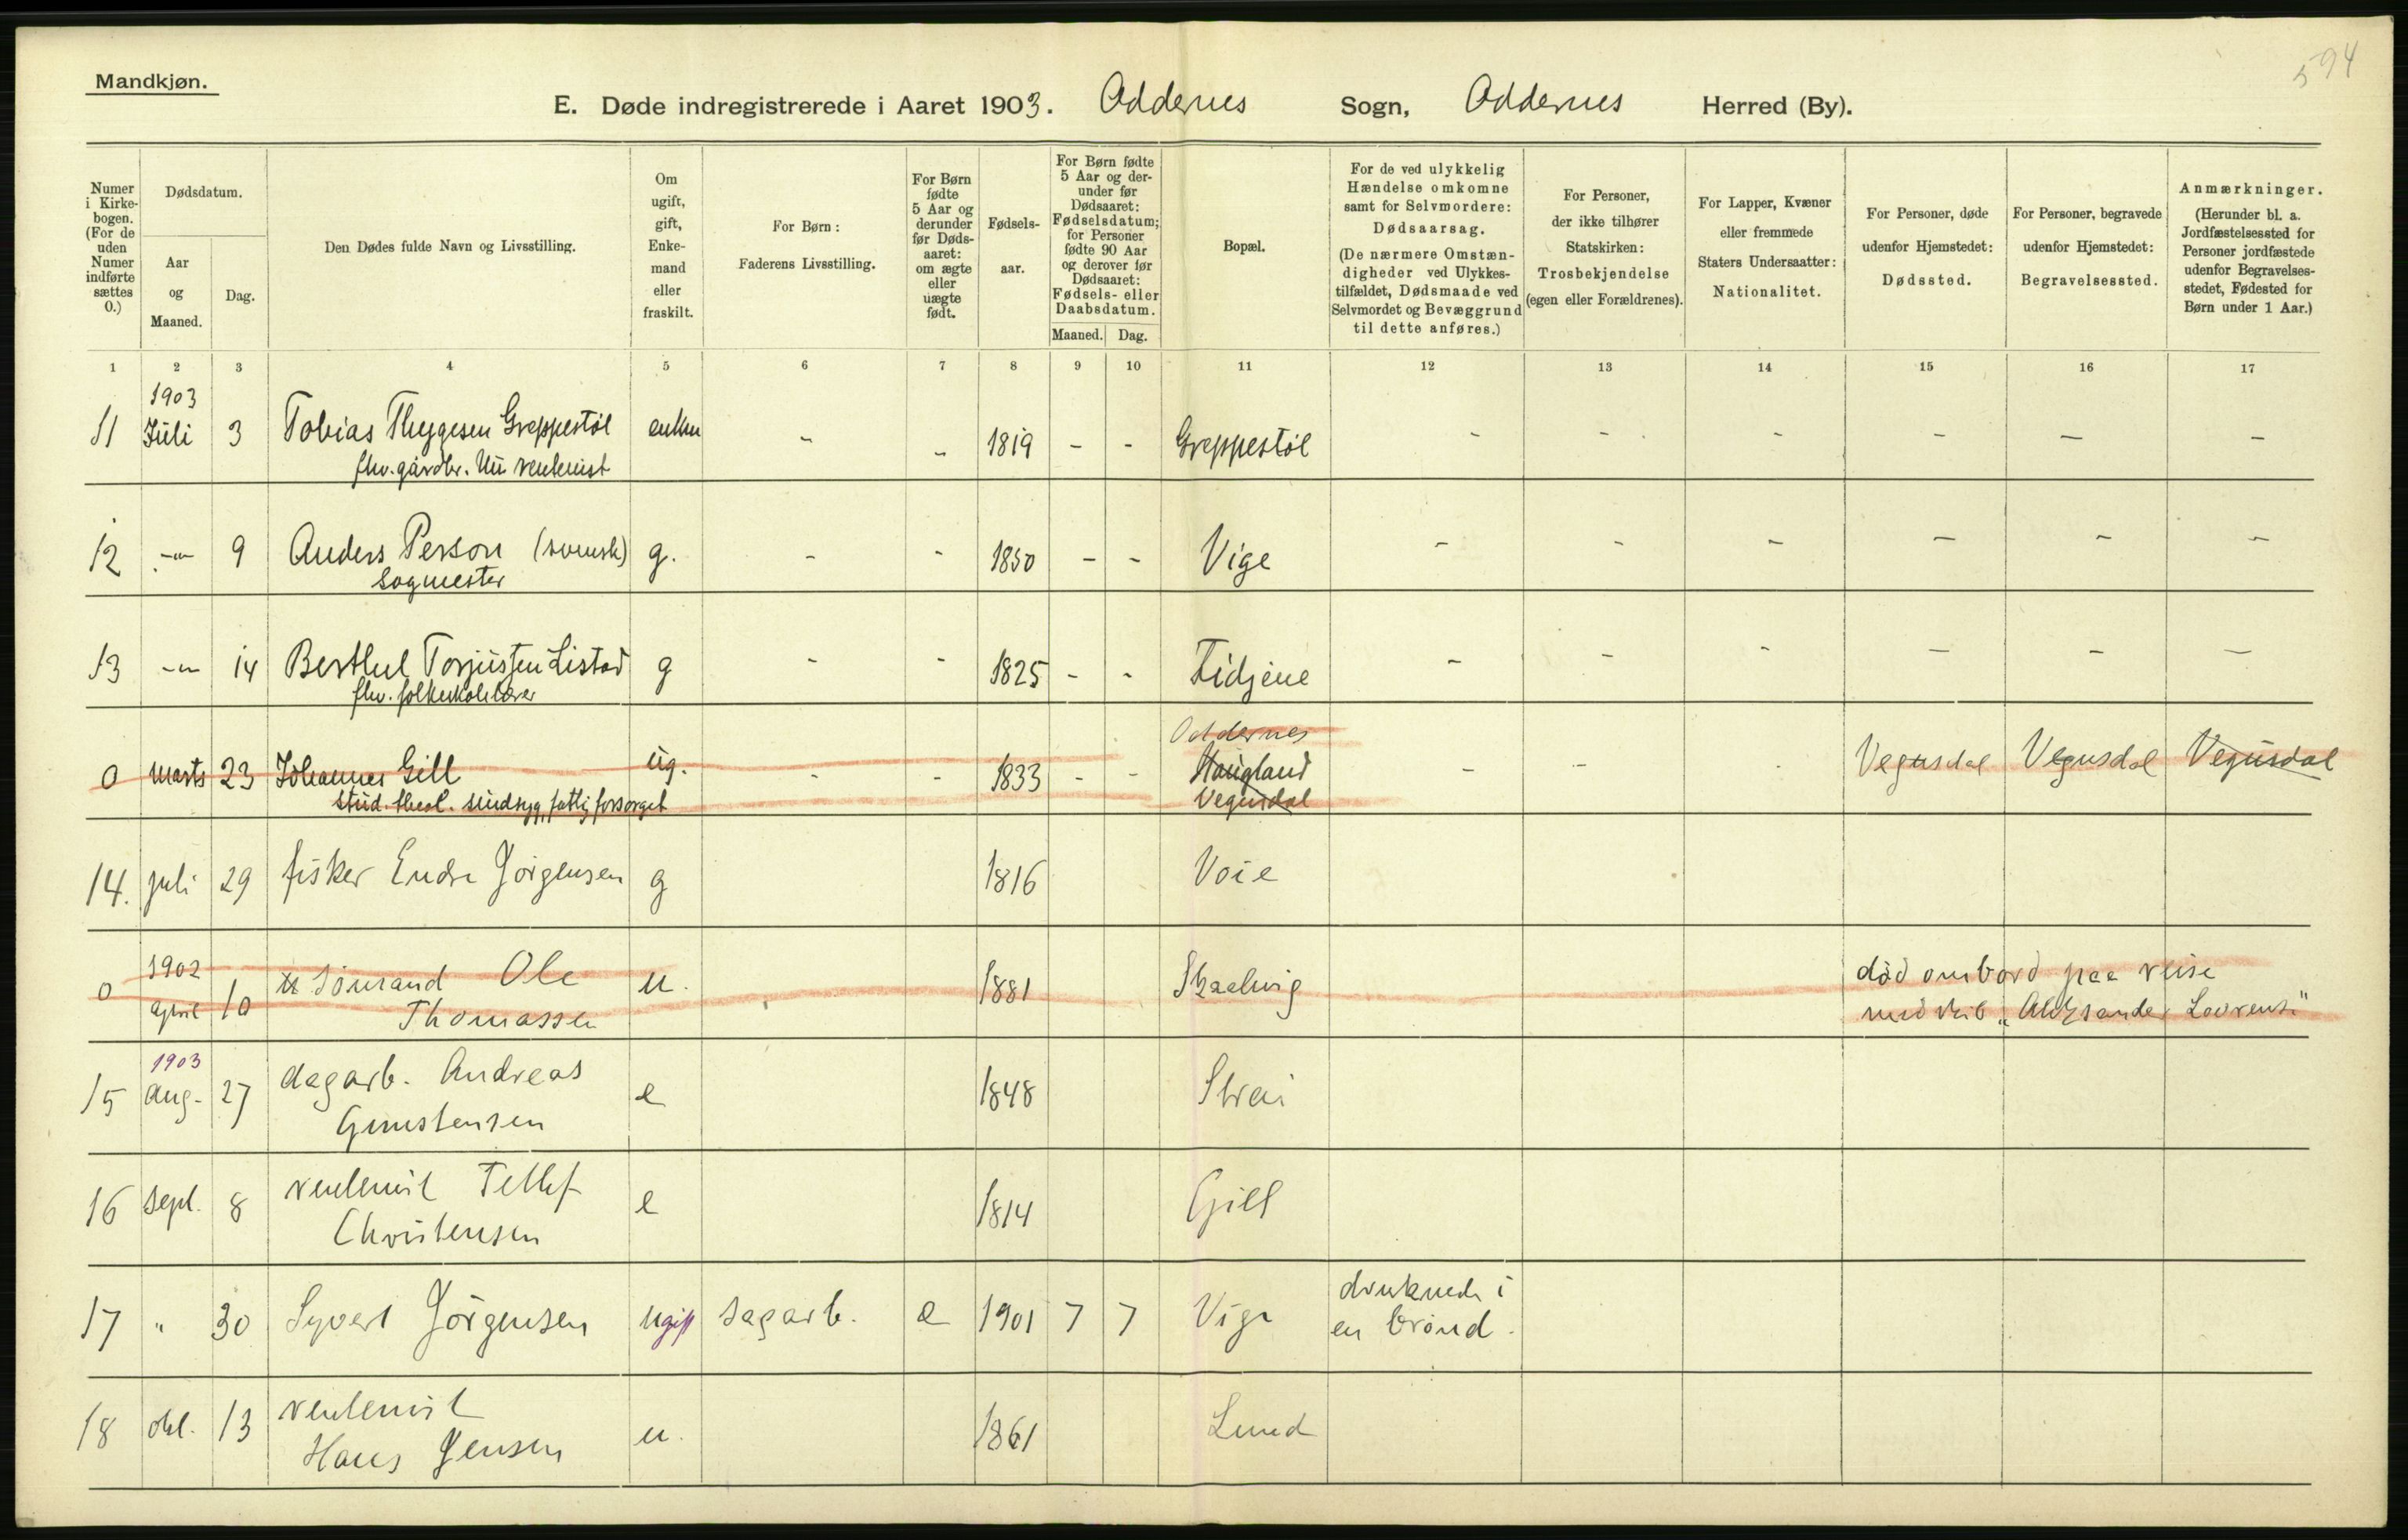 594
Mandkjøn.
E. Døde indregistrerede i Aaret 1903. Oddernes Sogn, Oddernes Herred (By).
Numer i Kirkebogen. (For de uden Numer indførte sættes 0.)
Dødsdatum.
Aar og Maaned.
Dag.
Den Dødes fulde Navn og Livsstilling.
Om ugift, gift, Enkemand eller fraskilt.
For Børn: Faderens Livsstilling.
For Børn fødte 5 Aar og derunder før Dødsaaret: om ægte eller uægte født.
Fødselsaar.
For Børn fødte 5 Aar og derunder før Dødsaaret: Fødselsdatum; for Personer fødte 90 Aar og derover før Dødsaaret: Fødsels- eller Daabsdatum.
Maaned. Dag.
Bopæl.
For de ved ulykkelig Hændelse omkomne samt for Selvmordere: Dødsaarsag. (De nærmere Omstændigheder ved Ulykkestilfældet, Dødsmaade ved Selvmordet og Bevæggrund til dette anføres.)
For Personer, der ikke tilhører Statskirken: Trosbekjendelse (egen eller Forældrenes).
For Lapper, Kvæner eller fremmede Staters Undersaatter: Nationalitet.
For Personer, døde udenfor Hjemstedet: Dødssted.
For Personer, begravede udenfor Hjemstedet: Begravelsessted.
Anmærkninger. (Herunder bl. a. Jordfæstelsessted for Personer jordfæstede udenfor Begravelsesstedet, Fødested for Børn under 1 Aar.)
1 2 3 4 5 6 7 8 9 10 11 12 13 14 15 16 17
1903
11 Juli 3 Tobias Thygesen Greppestøl enkm - - 1819 - - Greppestøl - - - - - -
fhv. gårdbr. Nu rentenist
12 -"- 9 Anders Person (svensk) g. - - 1850 - - Vige - - - - - -
Sagmester
13 -"- 14 Berthul Torjussen Listad g - - 1825 - - Tidjene - - - - - -
fhv. folkeskolelærer
Oddernes
0 Marts 23 Johannes Gill ug. - - 1833 - - Haugland - - - Vegusdal Vegusdal Vegusdal
stud. theol. sindsyg, fattigforsørget Vegusdal
14. juli 29 fisker Endre Jørgensen g 1816 Voie
1902
0 April 10 Sømand Ole u. 1881 død ombord paa reise
Thomassen med skib "Aleksander Lavrens."
1903
15 Aug. 27 dagarb. Andreas e 1848 Strai
Gunstensen
16 Sept. 8 rentenist Tellef e 1814 Gill
Christensen
17 " 30 Syvert Jørgensen ugift sagarb. e 1901 7 7 Vige druknede i
en brønd.
18 okt. 13 rentenist
Hans Jensen u. 1861 Lund